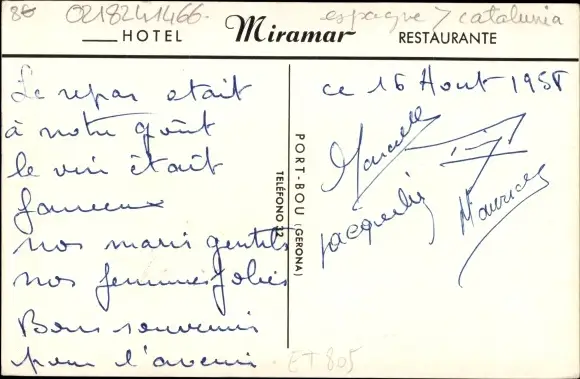 80 0218241466. espagne > catalunia
HOTEL Miramar RESTAURANTE
Le repas etait
à notre goût
le vin était
fameux
nos maris gentils
nos femmes jolies
Bons souvenirs
pour l'avenir
PORT-BOU (GERONA)
TELÉFONO 12
ce 16 Aout 1958
Marcelle
Jacqueline
Maurice
ET 805